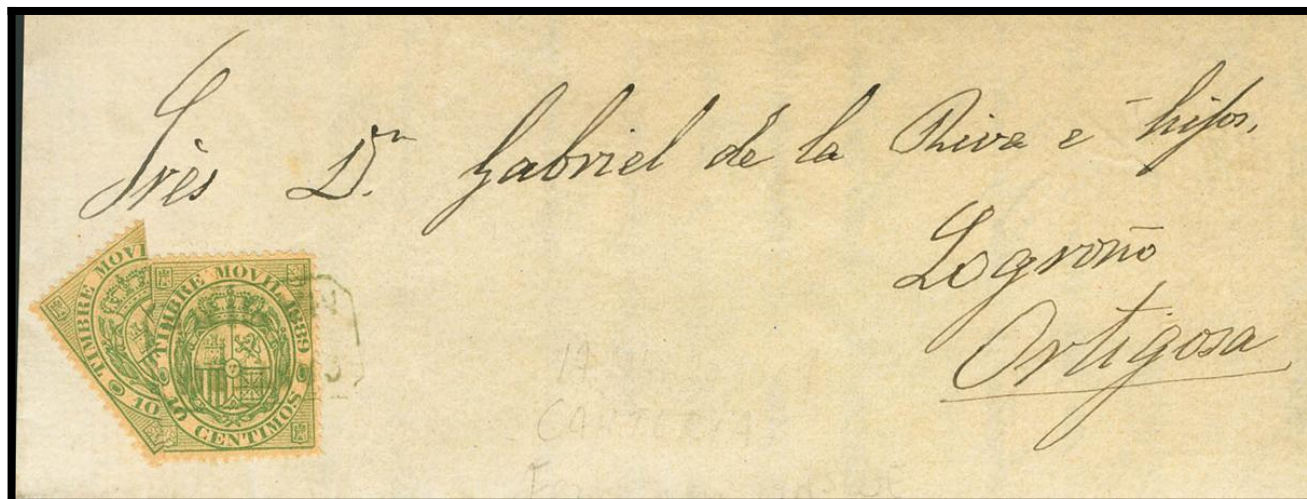 Sres Dn. Gabriel de la Riva e hijos.
Logroño
Ortigosa
TIMBRE MOVI
10
TIMBRE MOVIL 1889
10 CENTIMOS